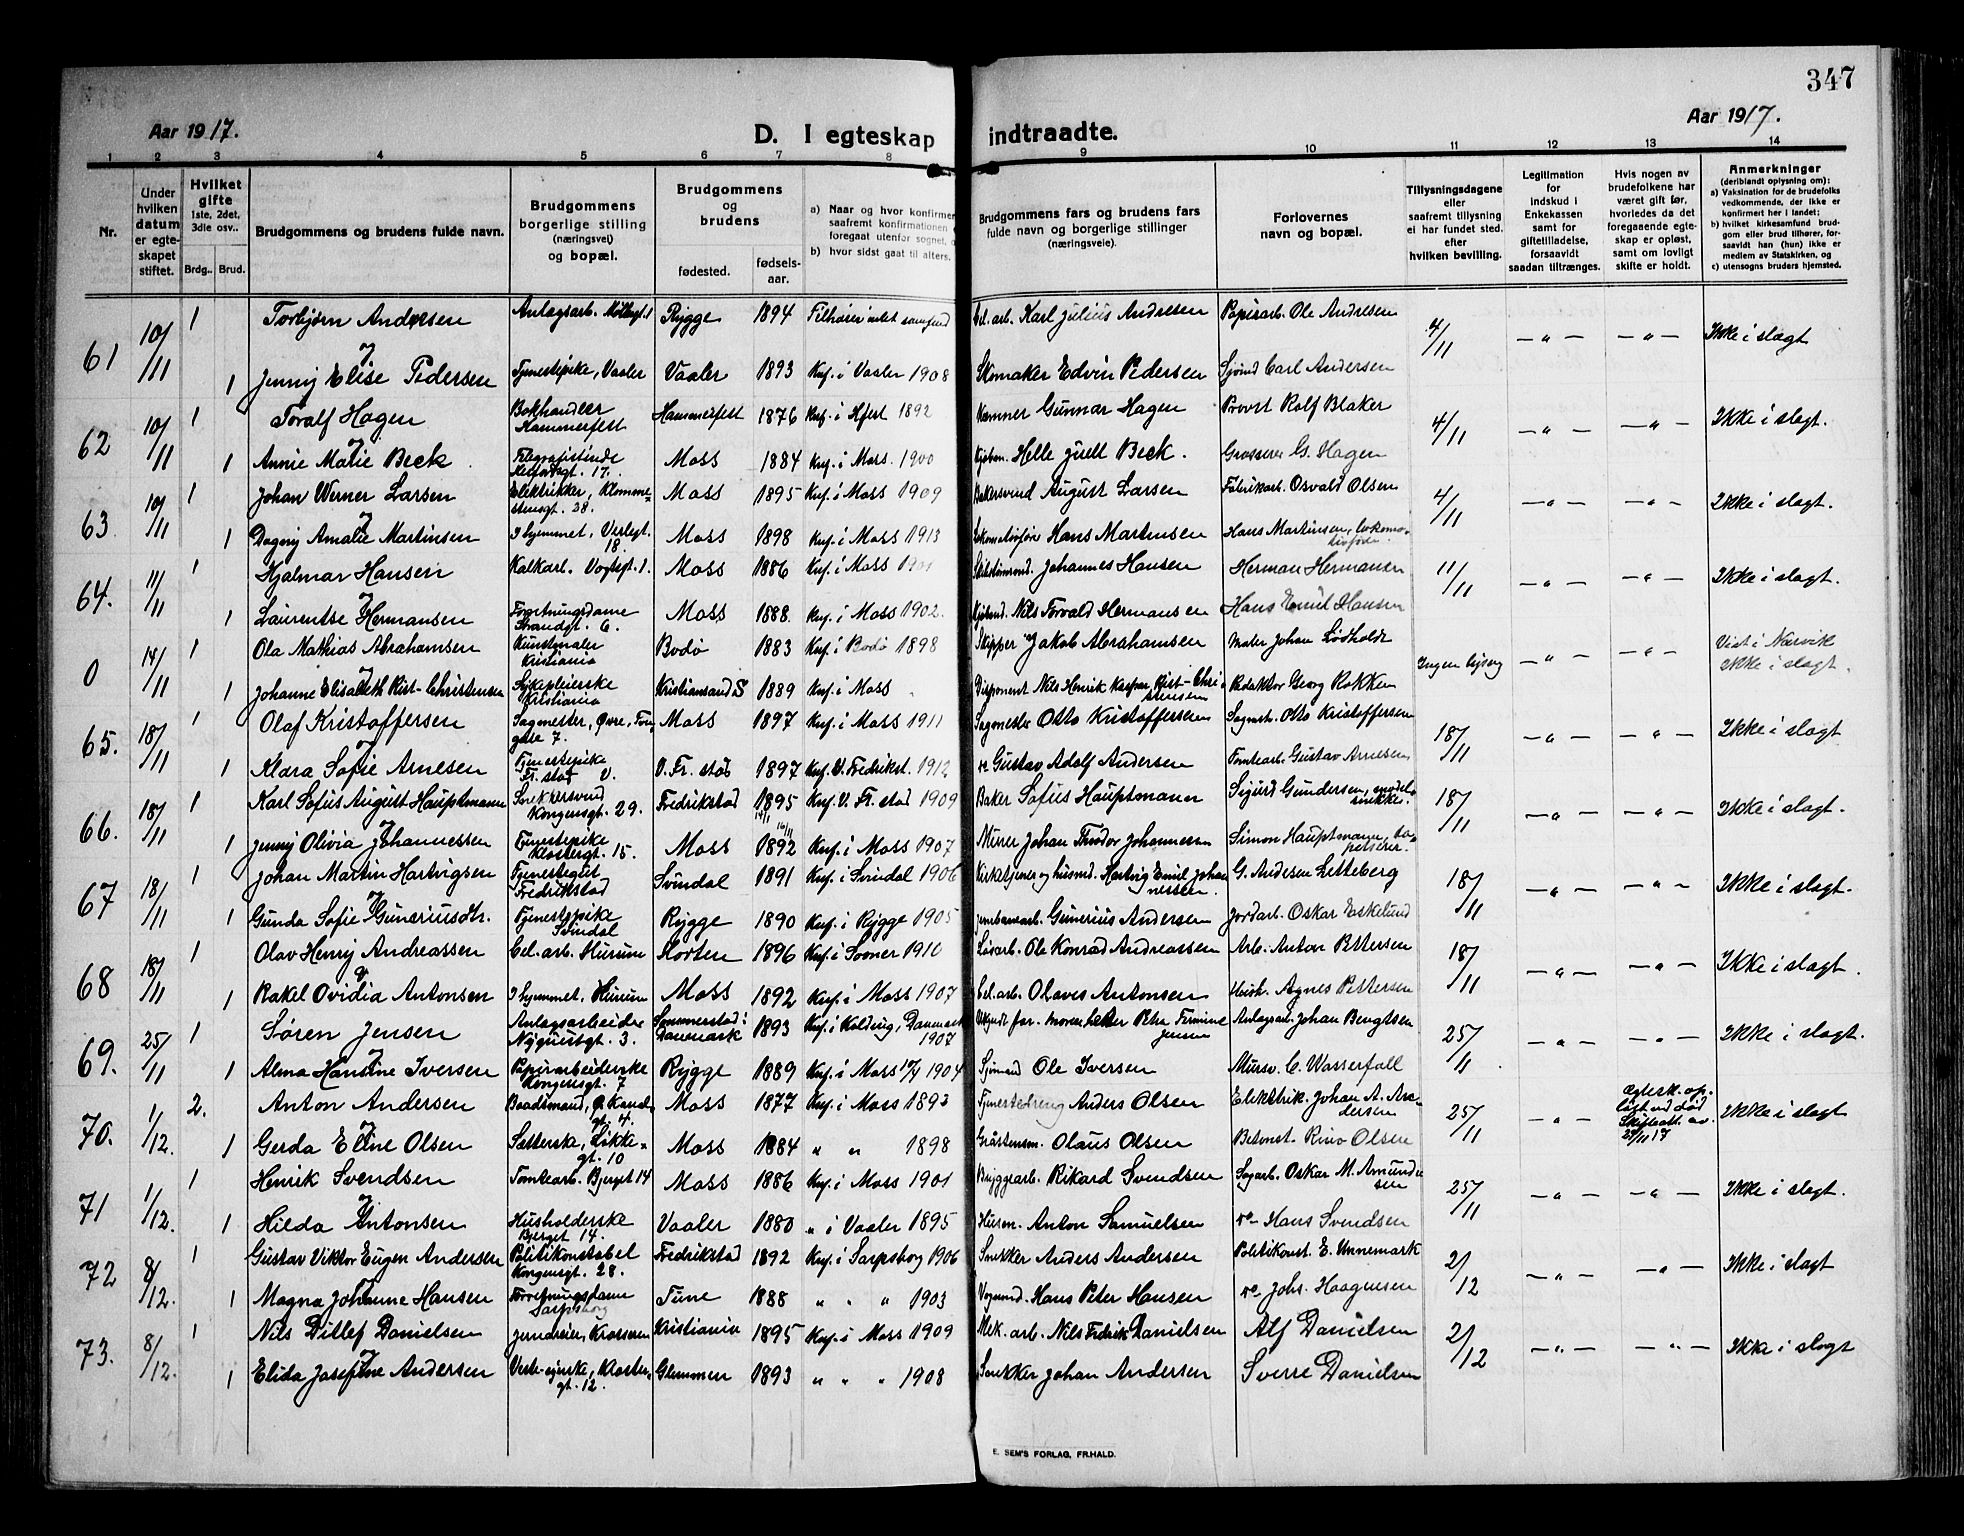 347
Aar 1917.
D. I egteskap indtraadte.
Aar 1917.
1 2 3 4 5 6 7 8 9 10 11 12 13 14
Nr.
Under hvilken datum er egteskapet stiftet.
Hvilket gifte 1ste, 2det, 3die osv..
Brdg.. Brud.
Brudgommens og brudens fulde navn.
Brudgommens borgerlige stilling (næringsvei) og bopæl.
Brudgommens og brudens
fødested.
fødselsaar.
a) Naar og hvor konfirmer saafremt konfirmationen foregaat utenfor sognet,
b) hvor sidst gaat til alters.
Brudgommens fars og brudens fars fulde navn og borgerlige stillinger (næringsveie).
Forlovernes navn og bopæl.
Tillysningsdagene eller saafremt tillysning ei har fundet sted, efter hvilken bevilling.
Legitimation for indskud i Enkekassen samt for giftetilladelse, forsaavidt saadan tiltrænges.
Hvis nogen av brudefolkene har været gift før, hvorledes da det foregaaende egteskap er opløst, samt om lovligt skifte er holdt.
Anmerkninger (deriblandt oplysning om): a) Vaksination for de brudefolks vedkommende, der ikke er konfirmert her i landet; b) hvilket kirkesamfund brudgom eller brud tilhører, forsaavidt han (hun) ikke er medlem av Statskirken, og c) utensogns bruders hjemsted.
61 10/11 1 Torbjørn Andersen Anlagsarb. Rygge 1894 Cel. arb. Karl Julius Andresen Papirarb. Ole Andresen 4/11 — „ — — „ — Ikke i slagt
1 Jenny Elise Pedersen Tjenestepike, Vaaler Vaaler 1893 Knf. i Vaaler 1908 Skomaker Edvin Pedersen Sjømd Carl Andersen
62 10/11 1 Toralf Hagen Bokhandler Hammerfest Hammerfest 1876 Knf. i Hfest 1892 Kemner Gunnar Hagen Provst Rolf Blaker 4/11 — „ — — „ — Ikke i slagt.
1 Annie Marie Beck Telegrafistinde 17. Moss 1884 Knf. i Moss. 1900 Kjøbm. Helle Juell Beck. Grosserer G. Hagen
63 10/11 1 Johan Werner Larsen Elektrikker, 28. Moss 1895 Knf. i Moss 1909 Bakersvend August Larsen Fabrikarb. Osvald Olsen 4/11 — „ — — „ — Ikke i slagt.
1 Dagny Amalie Martinsen I hjemmet, Verlegt. 18. Moss 1898 Knf. i Moss 1913 Hans Martinsen Hans Martinsen, lokomotivfører.
64. 11/11 1 Hjalmar Hansen Kalkarb. Vogtsgt. 1. Moss 1886 Knf. i Moss Johannes Hansen Herman Hermansen 11/11 — „ — — „ — Ikke i slagt.
1 Laurentse Hermansen Forretningsdame Strandgt. 6. Moss 1888. Knf. i Moss 1902. Nils Torvald Hermansen Hans Emil Hansen
0 14/11 1 Ola Mathias Abrahamsen Kunstmaler Kristiania Bodø 1883 Knf. i Bodø 1898 Skipper Jakob Abrahamsen Maler Johan Lødholdt — „ — — „ — Viet i Narvik ikke i slagt.
1 Johanne Elisabeth Rist-Christensen Sykepleierske Kristiania Kristiansand S 1889 Knf. i Moss Disponent Nils Henrik Kasper Rist-Christensen Redaktør Georg Rokken
65. 18/11 1 Olaf Kristoffersen Sagmester, Øvre, gate 7. Moss 1897 Knf. i Moss 1911 Sagmester Otto Kristoffersen Sagmst. Otto Kristoffersen 18/11 — „ — — „ — Ikke i slagt
1 Klara Sofie Arnesen Tjenestepike Fr.stad V. V. Fr. stad 1897 Knf. V. Fredrikst. 1912 Gustav Adolf Andersen Tomtearb. Gustav Arnesen
66. 18/11 1 Karl Sofus August Hauptmann Snekkersvend Kongensgt. 29. Fredrikstad 1895 Knf. V. Fr. stad 1909 Baker Sofus Hauptmann Sigurd Gundersen, modelsnikker. 18/11 — „ — — „ — Ikke i slagt.
1 Jenny Olivia Johannessen Tjenestepike Klostergt. 15. Moss 1892 Knf. i Moss 1907 Murer Johan Theodor Johannessen Simon Hauptmann, tapetserer.
67 18/11 1 Johan Martin Hartvigsen Tjenestegut Fredrikstad Svindal 1891 Knf. i Svindal 1906 Kirketjener og husmd. Hartvig Emil Johannessen. G. Andersen Letteberg 18/11 — „ — — „ — Ikke i slagt.
1 Gunda Sofie Guneriusdtr. Tjenestepike Svindal Rygge 1890 Knf. i Rygge 1905 Jernbanearb. Gunerius Andersen Jordarb. Oskar Eskelund
68 18/11 1 Olav Henry Andreassen Cel. arb. Hurum Horten 1896 Knf. i Sooner 1910 Ole Konrad Andreassen Arb. Anton Pettersen 18/11 — „ — — „ — Ikke i slagt.
1 Rakel Ovidia Antonsen I hjemmet, Hurum Moss 1892 Knf. i Moss 1907 Cel. arb. Olaves Antonsen Agnes Pettersen
69. 25/11 1 Søren Jensen Anlagsarbeider Nyquistgt. 3. Danmark 1893 Knf. i Kolding, Danmark 1907 Ukjendt far. moren heter Petra Firmine Jensen Anlagsarb. Johan Bengtsen 25/11 — „ — — „ — Ikke i slagt.
1 Alma Hansine Iversen Papirarbeiderske Kongensgt. 7 Rygge 1889 Knf. i Moss 1904 Sjømand Ole Iversen Mursv. C. Wasserfall
70. 1/12. 2. Anton Andersen Baadsmand, Moss 1877 Knf. i Moss 1893 Anders Olsen Elektrik. Johan A. Andersen 25/11 — „ — Egtesk. opløst ved død Skifteatt. av 25/11 17 Ikke i slagt
1 Gerda Eline Olsen Sætterske, Løkkegt. 10 Moss 1884 „ „ 1898 Olaus Olsen Betonst. Rino Olsen
71 1/12. 1 Henrik Svendsen Tomtearb. Bjerget 14 Moss 1886 Knf. i Moss 1901 Bryggearb. Rikard Svendsen Sagarb. Oskar M. Amundsen 25/11 — „ — — „ — Ikke i slagt.
1 Hilda Antonsen Husholderske Bjerget 14. Vaaler 1880 „ i Vaaler 1895 Husm. Anton Samuelsen do Hans Svendsen
72 8/12. 1 Gustav Viktor Eugen Andersen Politikonstabel Kongensgt. 28. Fredrikstad 1892 Knf. i Sarpsborg 1906 Snekker Anders Andersen Politikonst. E. Unnemark 2/12 — „ — — „ — Ikke i slagt
1 Magna Johanne Hansen Forretningsdame Sarpsborg Tune 1888 „ „ „ 1903 Hans Peter Hansen do Johs. Haagensen
73. 8/12. 1 Nils Ditlef Danielsen Jerndreier, Kristiania 1895 Knf. i Moss 1909 Mek. arb. Nils Fredrik Danielsen Alf Danielsen 2/12 — „ — — „ — Ikke i slagt
1 Elida Josefine Andersen gt. 12. Glemmen 1893 „ „ „ 1908 Snekker Johan Andersen Sverre Danielsen
E. SEM'S FORLAG, FR.HALD.